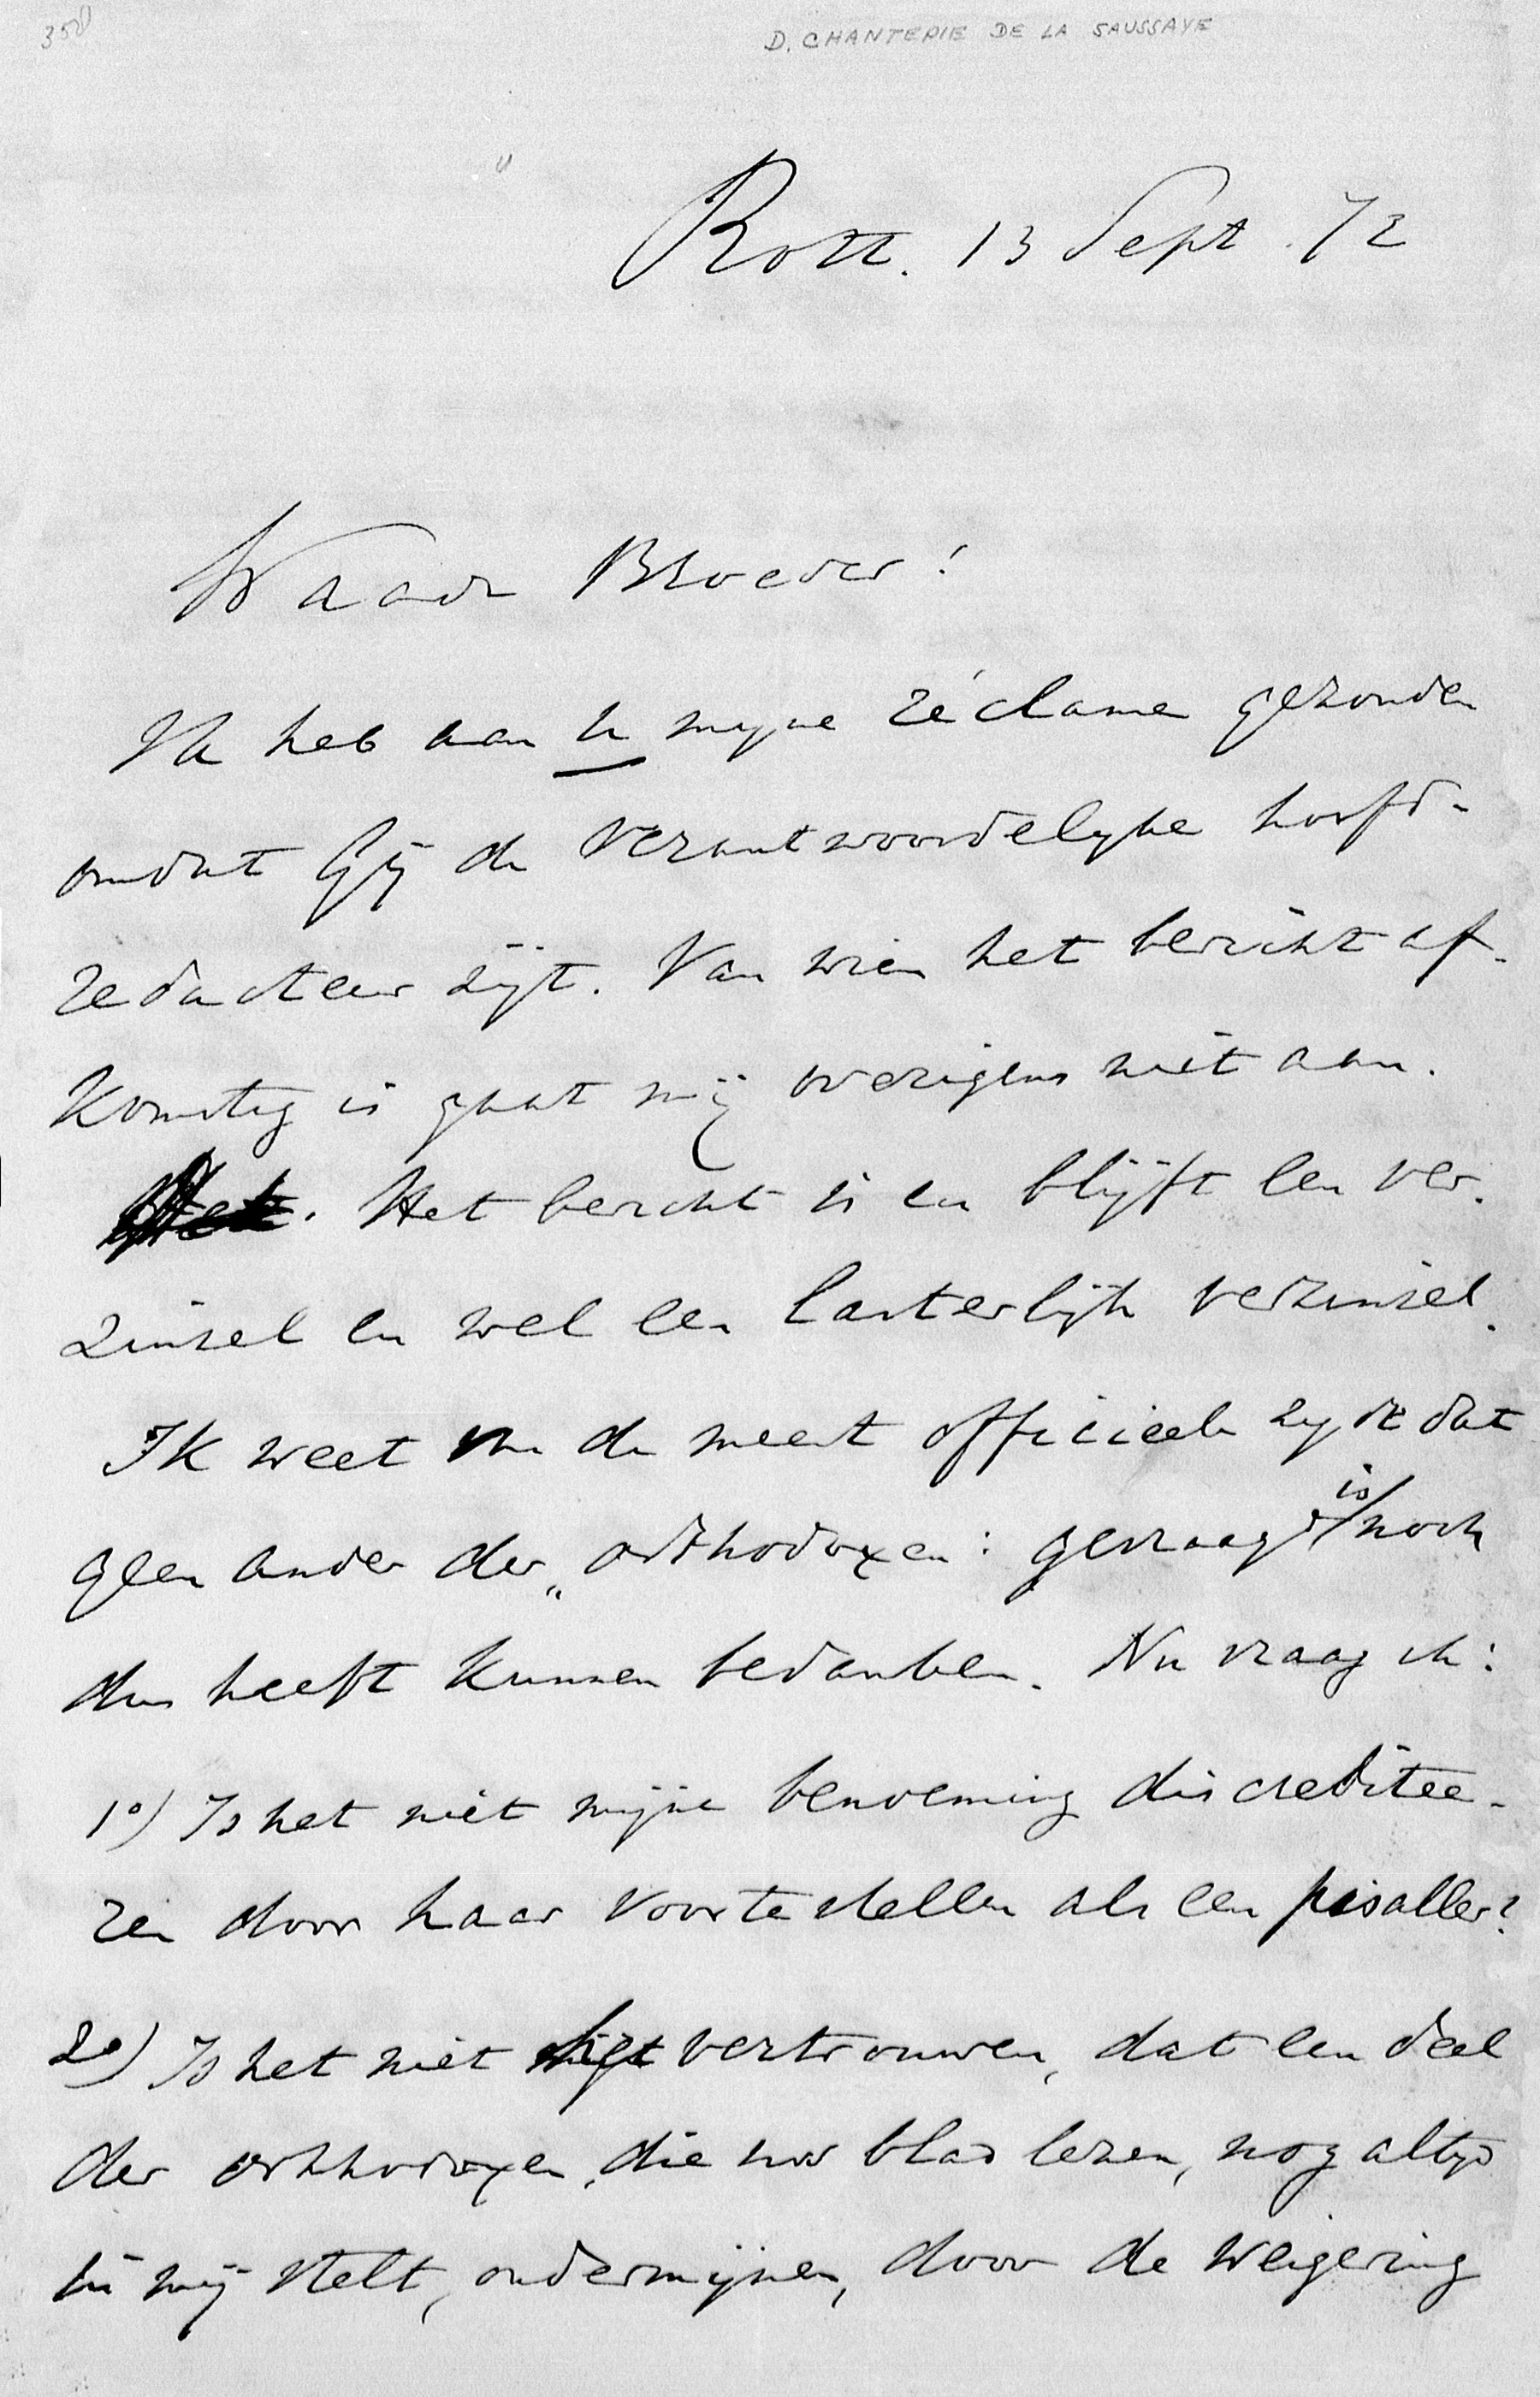 350
D. CHANTEPIE DE LA SAUSSAYE
Rott. 13 Sept. 72
Waarde Broeder!
Ik heb aan U mijne réclame gezonden
omdat Gij de verantwoordelijke hoofd-
redacteur zijt. Van wien het bericht af-
komstig is gaat mij overigens niet aan.
Het bericht is en blijft een ver-
zinsel en wel een lasterlijk verzinsel.
Ik weet van de meest officieele zijde dat
geen ander der „orthodoxen" gevraagd is noch
dus heeft kunnen bedanken. Nu vraag ik:
1º) Is het niet mijne benoeming discreditee-
ren door haar voor te stellen als een pis aller?
2º) Is het niet het vertrouwen, dat een deel
der orthodoxen, die uw blad lezen, nog altijd
in mij stelt, ondermijnen, door de weigering